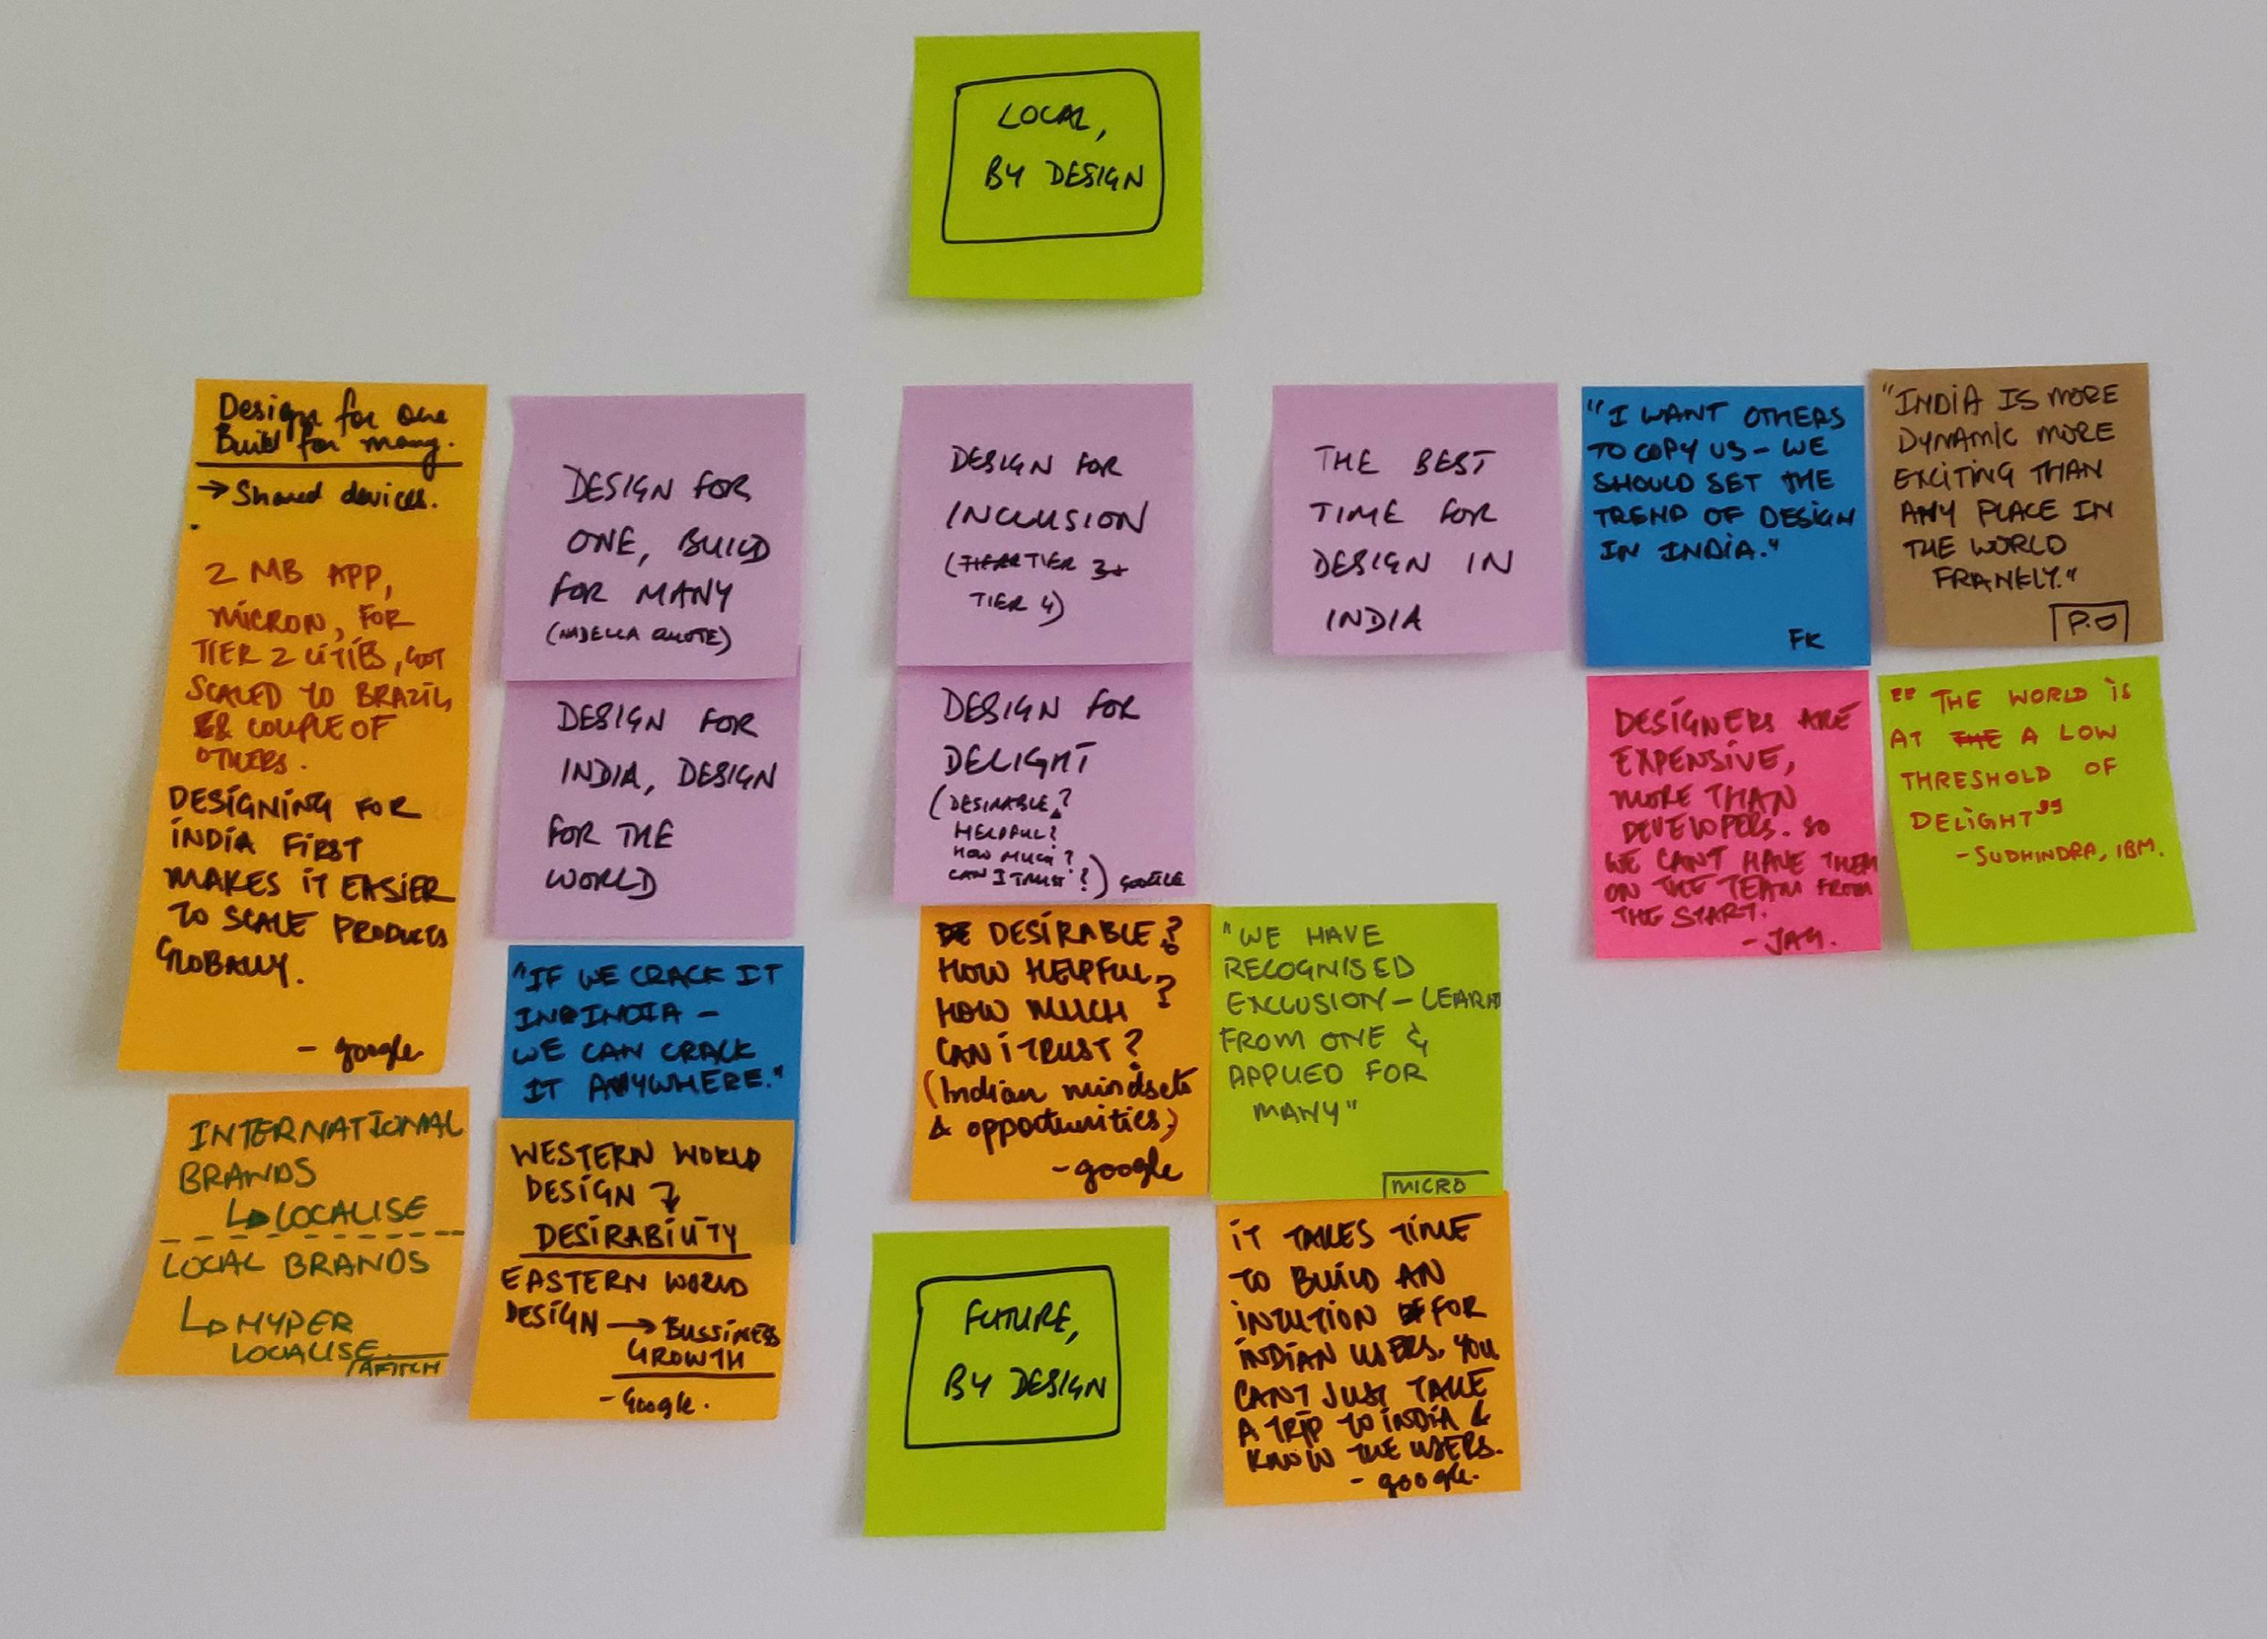 LOCAL,
BY DESIGN
Design for one
Build for many.
→ Shared devices.
2 MB APP,
MICRON, FOR
TIER 2 CITIES, GOT
SCALED TO BRAZIL
& COUPLE OF
OTHERS.
DESIGNING FOR
INDIA FIRST
MAKES IT EASIER
TO SCALE PRODUCTS
GLOBALLY.
- google
INTERNATIONAL
BRANDS
↳ LOCALISE
LOCAL BRANDS
↳ HYPER
LOCALISE
DESIGN FOR
ONE, BUILD
FOR MANY
(NADELLA QUOTE)
DESIGN FOR
INDIA, DESIGN
FOR THE
WORLD
"IF WE CRACK IT
IN INDIA -
WE CAN CRACK
IT ANYWHERE."
WESTERN WORLD
DESIGN →
DESIRABILITY
EASTERN WORLD
DESIGN → BUSSINESS
GROWTH
- Google.
DESIGN FOR
INCLUSION
(TIER 3+
TIER 4)
DESIGN FOR
DELIGHT
(DESIRABLE?
HELPFUL?
HOW MUCH?
CAN I TRUST?) GOOGLE
DESIRABLE?
HOW HELPFUL?
HOW MUCH?
CAN I TRUST?
(Indian mindsets
& opportunities)
- google
"WE HAVE
RECOGNISED
EXCLUSION - LEARN
FROM ONE &
APPLIED FOR
MANY"
MICRO
FUTURE,
BY DESIGN
IT TAKES TIME
TO BUILD AN
INTUTION FOR
INDIAN USERS. YOU
CANT JUST TAKE
A TRIP TO INDIA &
KNOW THE USERS.
- google.
THE BEST
TIME FOR
DESIGN IN
INDIA
"I WANT OTHERS
TO COPY US - WE
SHOULD SET THE
TREND OF DESIGN
IN INDIA."
FK
"INDIA IS MORE
DYNAMIC MORE
EXCITING THAN
ANY PLACE IN
THE WORLD
FRANKLY."
P.O
DESIGNERS ARE
EXPENSIVE,
MORE THAN
DEVELOPERS. SO
WE CANT HAVE THEM
ON THE TEAM FROM
THE START.
- JAY.
"THE WORLD IS
AT THE A LOW
THRESHOLD OF
DELIGHT"
- SUDHINDRA, IBM.